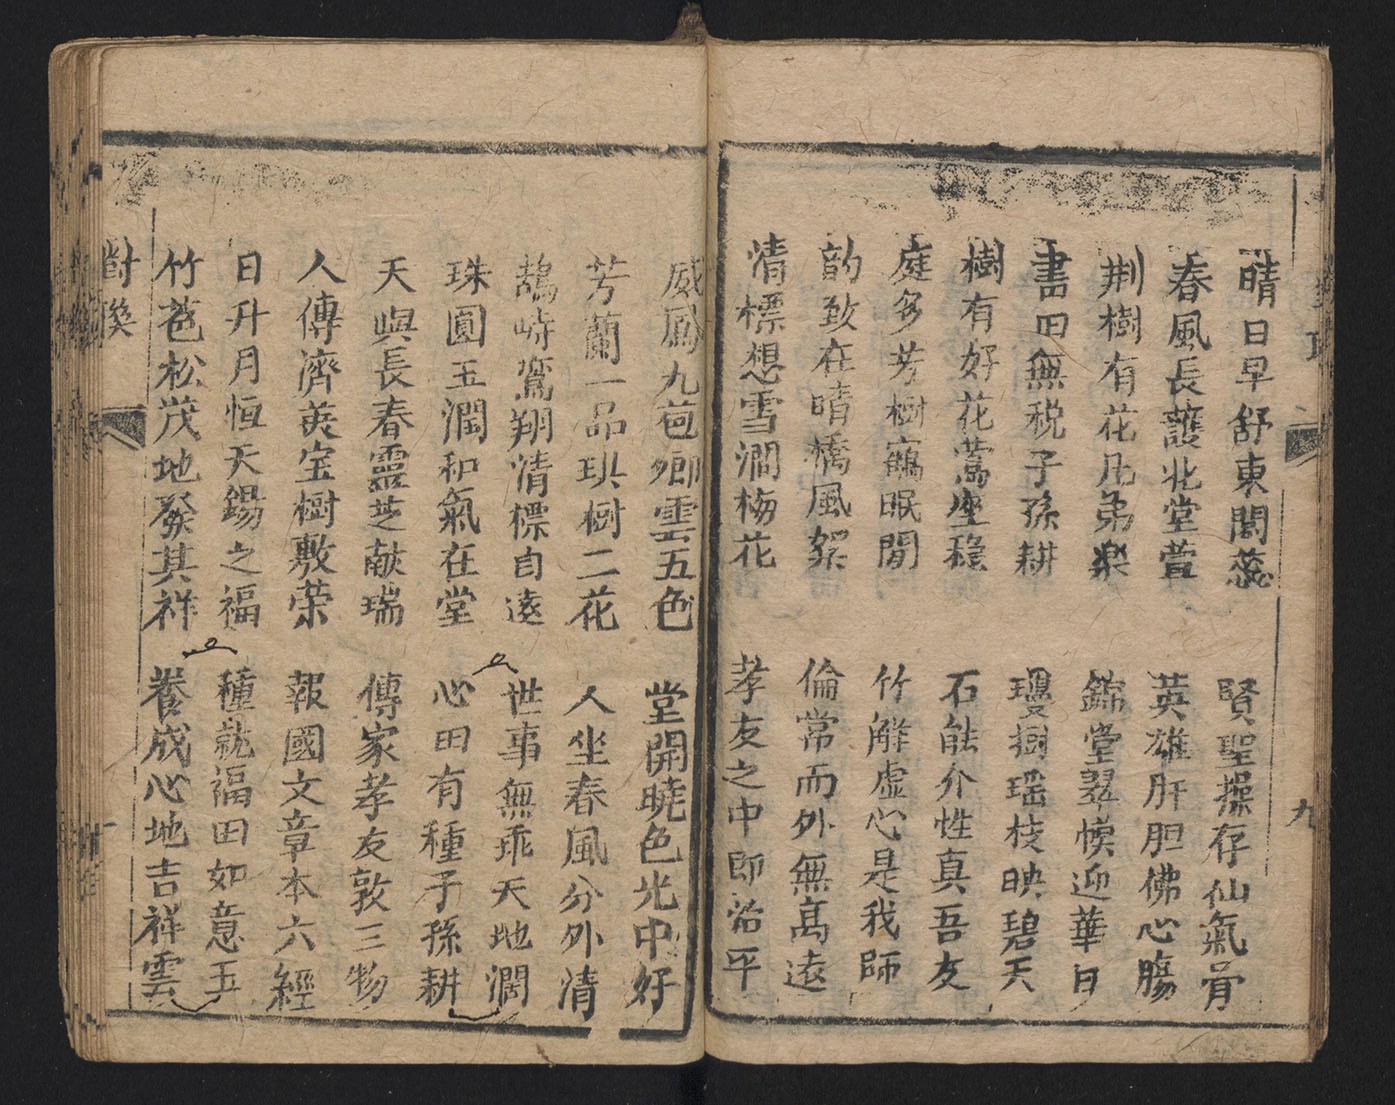 晴日早舒東閣蕊
春風長護北堂萱
荆樹有花凡弟樂
書田無税子孫耕
樹有好花鶯座穏
庭多芳樹鶴眠閒
韵致在晴橋風絮
清標想雪澗梅花
賢聖操存仙氣骨
英雄肝胆佛心膓
錦堂翠幙迎華日
瓊樹瑶枝映碧天
石能介性真吾友
竹觧虚心是我師
倫常而外無髙遠
孝友之中即治平
九
威鳳九苞卿雲五色
芳蘭一品琪樹二花
鵠峙鸞翔清標自遠
珠圓玉潤和氣在堂
天與長春靈芝献瑞
人傳濟美宝樹敷荣
日升月恒天錫之福
竹苞松茂地發其祥
堂開曉色光中好
人坐春風分外清
世事無乖天地濶
心田有種子孫耕
傳家孝友敦三物
報國文章本六經
種就福田如意玉
養成心地吉祥雲
對聯